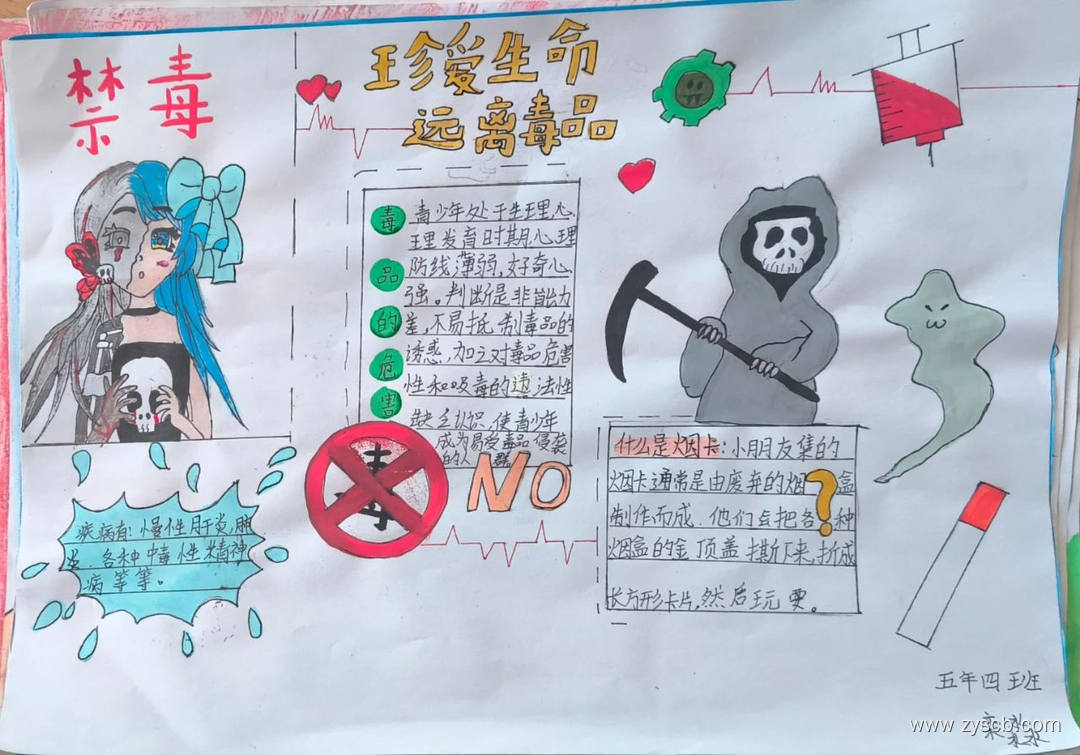 禁毒
珍爱生命
远离毒品
毒品的危害
青少年处于生理心
理发育时期,心理
防线薄弱,好奇心
强。判断是非能力
差,不易抵制毒品的
诱惑,加之对毒品危害
性和吸毒的违法性
缺乏认识,使青少年
成为易受毒品侵袭
的人群
毒
NO
疾病有:慢性肝炎,肺
炎,各种中毒性精神
病等等。
什么是烟卡:小朋友集的
烟卡通常是由废弃的烟盒
制作而成.他们会把各?种
烟盒的金顶盖撕下来,折成
长方形卡片,然后玩耍。
五年四班
www.zyscb.com